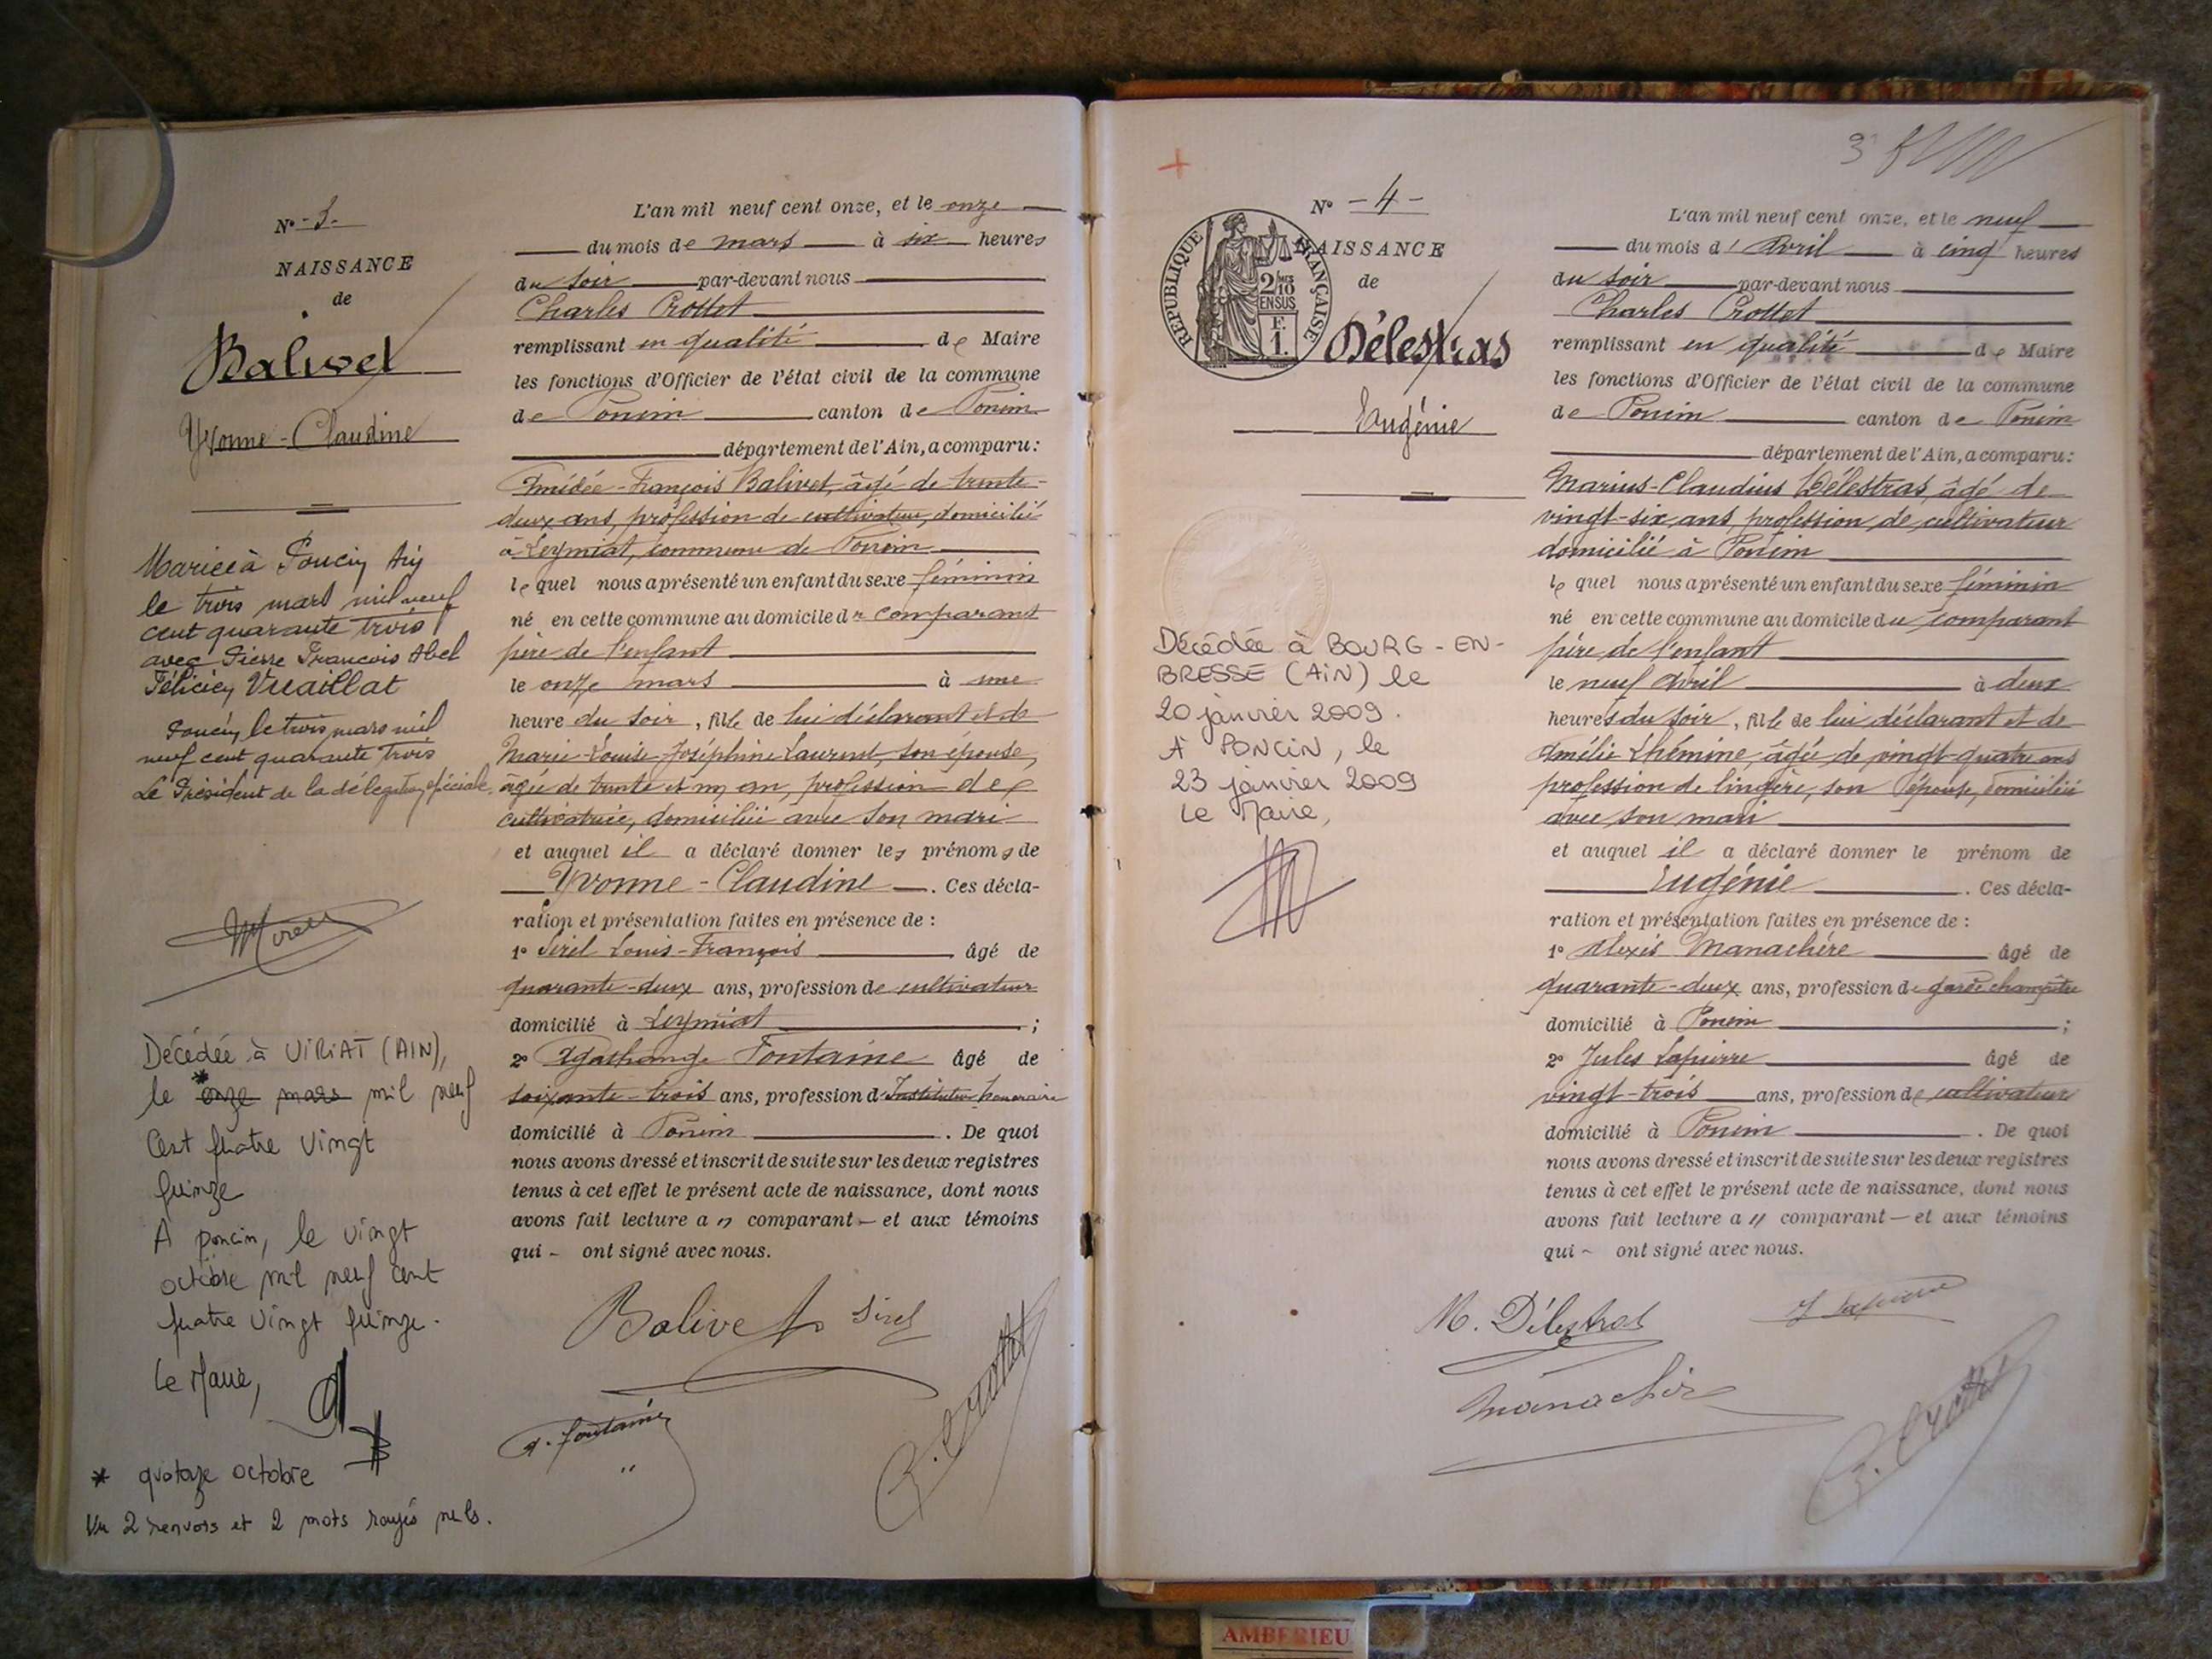 N° - 3 -
NAISSANCE
de
Balivet
Yvonne - Claudine
Mariée à Poncin Ain
le trois mars mil neuf
cent quarante trois
avec Pierre Francois Abel
Félicien Vuaillat
Poncin, le trois mars mil
neuf cent quarante trois
Le Président de la délégation spéciale,
Décédée à VIRIAT (AIN),
le * onze mars mil neuf
Cent quatre vingt
quinze
A poncin, le vingt
octobre mil neuf cent
quatre vingt quinze.
Le Maire,
* quatorze octobre
Vu 2 renvois et 2 mots rayés nuls.
L'an mil neuf cent onze, et le onze
du mois de mars à six heures
du soir par-devant nous
Charles Crottet
remplissant en qualité de Maire
les fonctions d'Officier de l'état civil de la commune
de Poncin canton de Poncin
département de l'Ain, a comparu :
Amédée-François Balivet, âgé de trente-
deux ans, profession de cultivateur, domicilié
à Leymiat, commune de Poncin
lequel nous a présenté un enfant du sexe féminin
né en cette commune au domicile du comparant
père de l'enfant
le onze mars à une
heure du soir, fille de lui déclarant et de
Marie-Louise-Joséphine Laurent, son épouse,
âgée de trente et un an, profession de
cultivatrice, domiciliée avec son mari
et auquel il a déclaré donner les prénoms de
Yvonne - Claudine . Ces décla-
ration et présentation faites en présence de :
1° Sirel Louis-François âgé de
quarante-deux ans, profession de cultivateur
domicilié à Leymiat ;
2° Agathange Fontaine âgé de
soixante-trois ans, profession d'Instituteur honoraire
domicilié à Poncin . De quoi
nous avons dressé et inscrit de suite sur les deux registres
tenus à cet effet le présent acte de naissance, dont nous
avons fait lecture au comparant — et aux témoins
qui ~ ont signé avec nous.
Balivet Sirel
A. Fontaine
C. Crottet
3
N° - 4 -
REPUBLIQUE FRANÇAISE
2/10 EN SUS
F.
1.
NAISSANCE
de
Délestras
Eugénie
Décédée à BOURG-EN-
BRESSE (AIN) le
20 janvier 2009.
A PONCIN, le
23 janvier 2009
Le Maire,
L'an mil neuf cent onze, et le neuf
du mois d'Avril à cinq heures
du soir par-devant nous
Charles Crottet
remplissant en qualité de Maire
les fonctions d'Officier de l'état civil de la commune
de Poncin canton de Poncin
département de l'Ain, a comparu :
Marius-Claudius Délestras, âgé de
vingt-six ans, profession de cultivateur
domicilié à Poncin
lequel nous a présenté un enfant du sexe féminin
né en cette commune au domicile du comparant
père de l'enfant
le neuf avril à deux
heures du soir, fille de lui déclarant et de
Amélie Lhémine, âgée de vingt-quatre ans
profession de lingère, son épouse, domiciliée
avec son mari
et auquel il a déclaré donner le prénom de
Eugénie . Ces décla-
ration et présentation faites en présence de :
1° Alexis Manachère âgé de
quarante-deux ans, profession de garde champêtre
domicilié à Poncin ;
2° Jules Lapierre âgé de
vingt-trois ans, profession de cultivateur
domicilié à Poncin . De quoi
nous avons dressé et inscrit de suite sur les deux registres
tenus à cet effet le présent acte de naissance, dont nous
avons fait lecture au comparant — et aux témoins
qui ~ ont signé avec nous.
M. Délestras J Lapierre
Manachère
C. Crottet
AMBERIEU